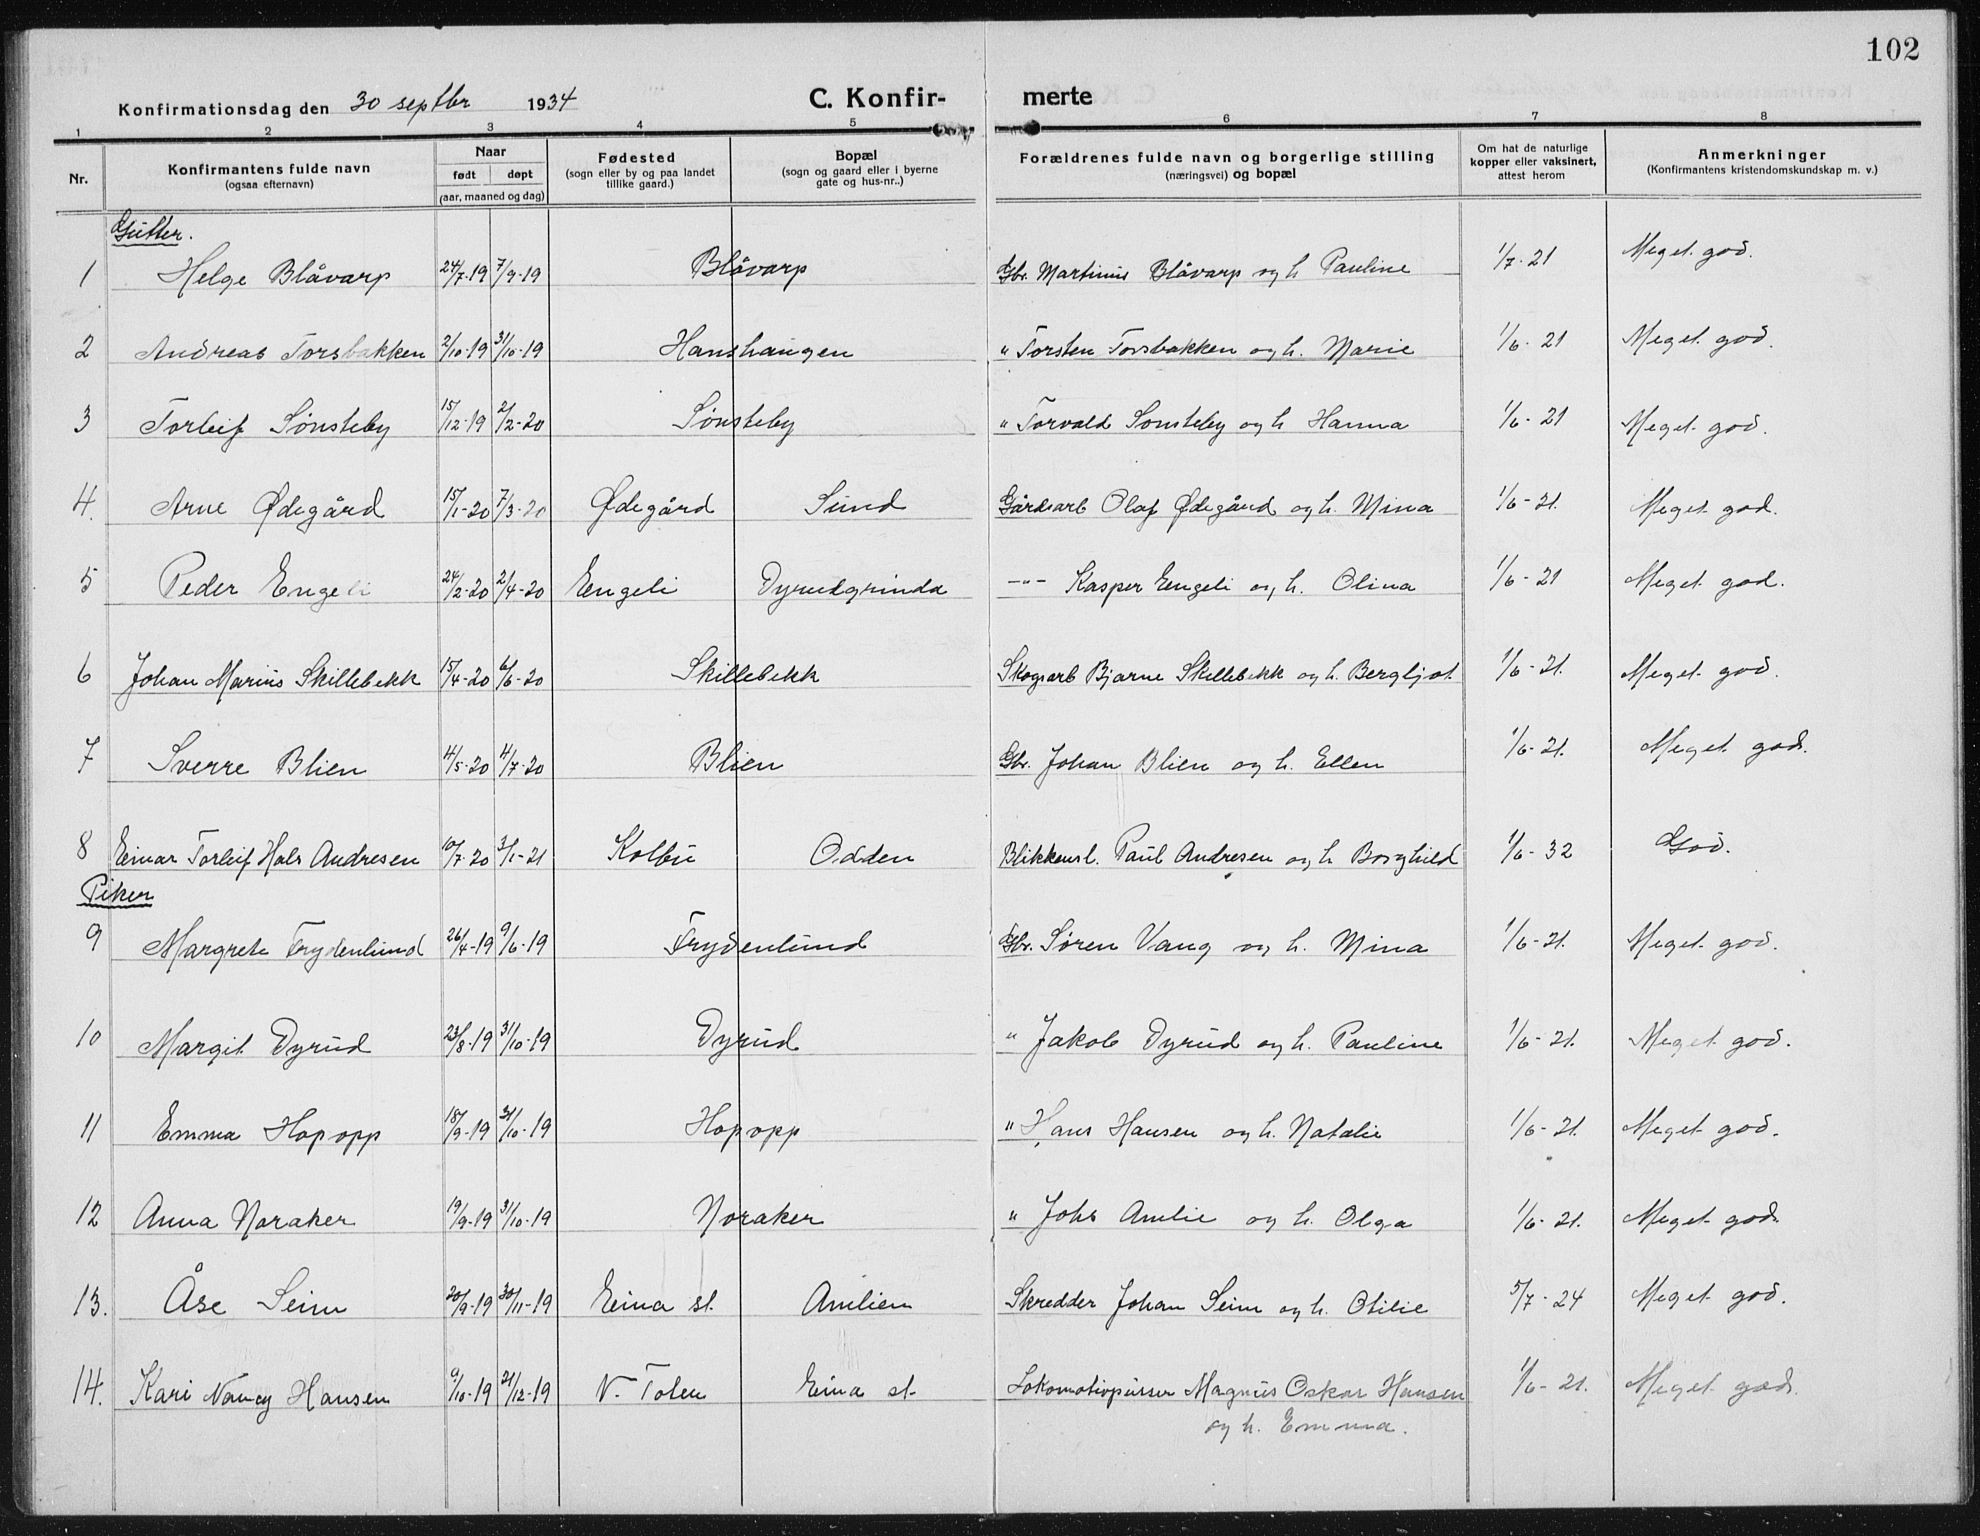 102
Konfirmationsdag den 30 septbr 1934 C. Konfir- merte
1 2 3 4 5 6 7 8
Nr. Konfirmantens fulde navn (ogsaa efternavn) Naar født døpt (aar, maaned og dag) Fødested (sogn eller by og paa landet tillike gaard.) Bopæl (sogn og gaard eller i byerne gate og hus-nr..) Forældrenes fulde navn og borgerlige stilling (næringsvei) og bopæl Om hat de naturlige kopper eller vaksinert, attest herom Anmerkninger (Konfirmantens kristendomskundskap m. v.)
Gutter.
1 Helge Blåvarp 24/7-19 7/9-19 Blåvarp Gbr. Martinius Blåvarp og h. Pauline 1/7-21 Meget god.
2 Andreas Torsbakken 2/10-19 31/10-19 Hanshaugen " Torsten Torsbakken og h. Marie 1/6-21 Meget god.
3 Torleif Sønsteby 15/12-19 2/2-20 Sønsteby " Torvald Sønsteby og h Hanna 1/6-21 Meget god.
4. Arne Ødegård 15/1-20 7/3-20 Ødegård Sund Gårdsarb Olaf Ødegård og h. Mina 1/6-21. Meget god.
5 Peder Engeli 24/2-20 2/4-20 Engeli Dyrudgrinda -"- Kasper Engeli og h. Olina 1/6-21 Meget god.
6 Johan Marius Skillebekk 15/4-20 6/6-20 Skillebekk Skogsarb Bjarne Skillebekk og h. Bergljot 1/6-21. Meget god.
7 Sverre Blien 4/5-20 4/7-20 Blien Gbr. Johan Blien og h. Ellen 1/6-21. Meget god.
8 Einar Torleif Hals Andresen 10/7-20 3/1-21 Kolbu Odden Blikkensl. Paul Andresen og h Borghild 1/6-32 God.
Piker
9 Margrete Frydenlund 26/4-19 9/6-19 Frydenlund Gbr. Søren Vang og h. Mina 1/6-21. Meget god.
10 Margit Dyrud 23/8-19 31/10-19 Dyrud " Jakob Dyrud og h. Pauline 1/6-21. Meget god.
11 Emma Hopopp 18/9-19 31/10-19 Hopopp " Hans Hansen og h. Natalie 1/6-21. Meget god.
12 Anna Noraker 19/9-19 31/10-19 Noraker " Johs Amlie og h. Olga 1/6-21. Meget god.
13. Åse Seim 20/9-19 30/11-19 Eina st. Amlien Skredder Johan Seim og h. Otilie 5/7-24 Meget god.
14. Kari Nancy Hansen 9/10-19 21/12-19 V. Toten Eina st. Lokomotivpusser Magnus Oskar Hansen 1/6-21. Meget god.
og h. Emma.